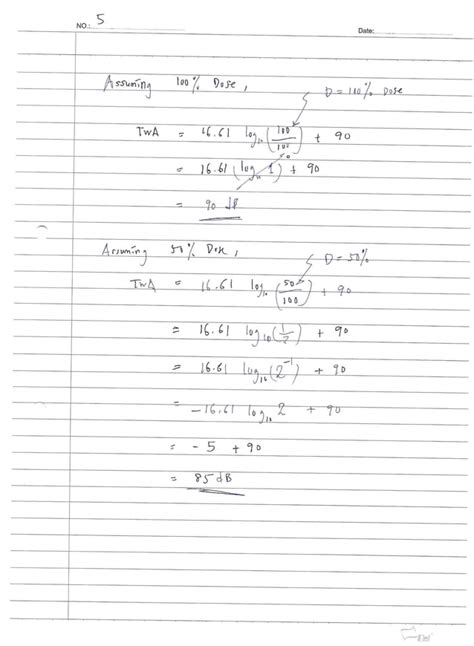 NO.: 5
Date:
Assuming 100% Dose,
D = 100% Dose
TWA = 16.61 log₁₀(100/100) + 90
= 16.61 (log₁₀ 1) + 90
0
= 90 dB
Assuming 50% Dose,
D = 50%
TWA = 16.61 log₁₀(50/100) + 90
= 16.61 log₁₀(1/2) + 90
= 16.61 log₁₀(2⁻¹) + 90
= -16.61 log₁₀ 2 + 90
= -5 + 90
= 85 dB